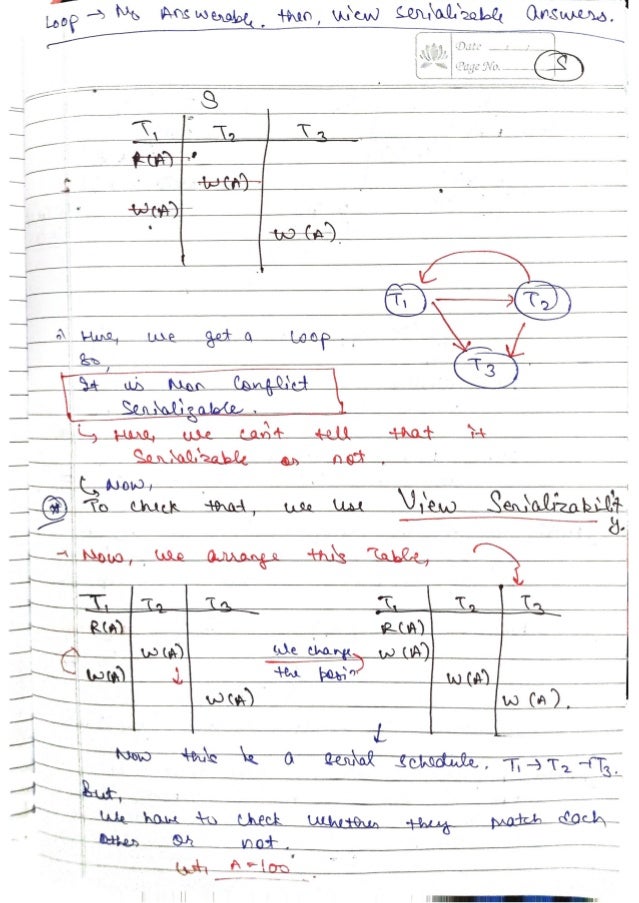 Loop → No Answerable. then, view serializable answers.
Date
Page No. 5
S
T1 T2 T3
R(A)
W(A)
W(A)
W(A)
T1 T2
T3
Here, we get a loop.
So,
It is Non Conflict
Serializable.
↳ Here, we can't tell that it
Serializable or not.
↳ Now,
To check that, we use View Serializability.
→ Now, we arrange this Table,
T1 T2 T3 T1 T2 T3
R(A) R(A)
W(A) we change W(A)
W(A) the W(A)
W(A) W(A).
Now this be a serial schedule. T1 → T2 → T3.
But,
We have to check whether they match each
other or not.
Let, A = 100